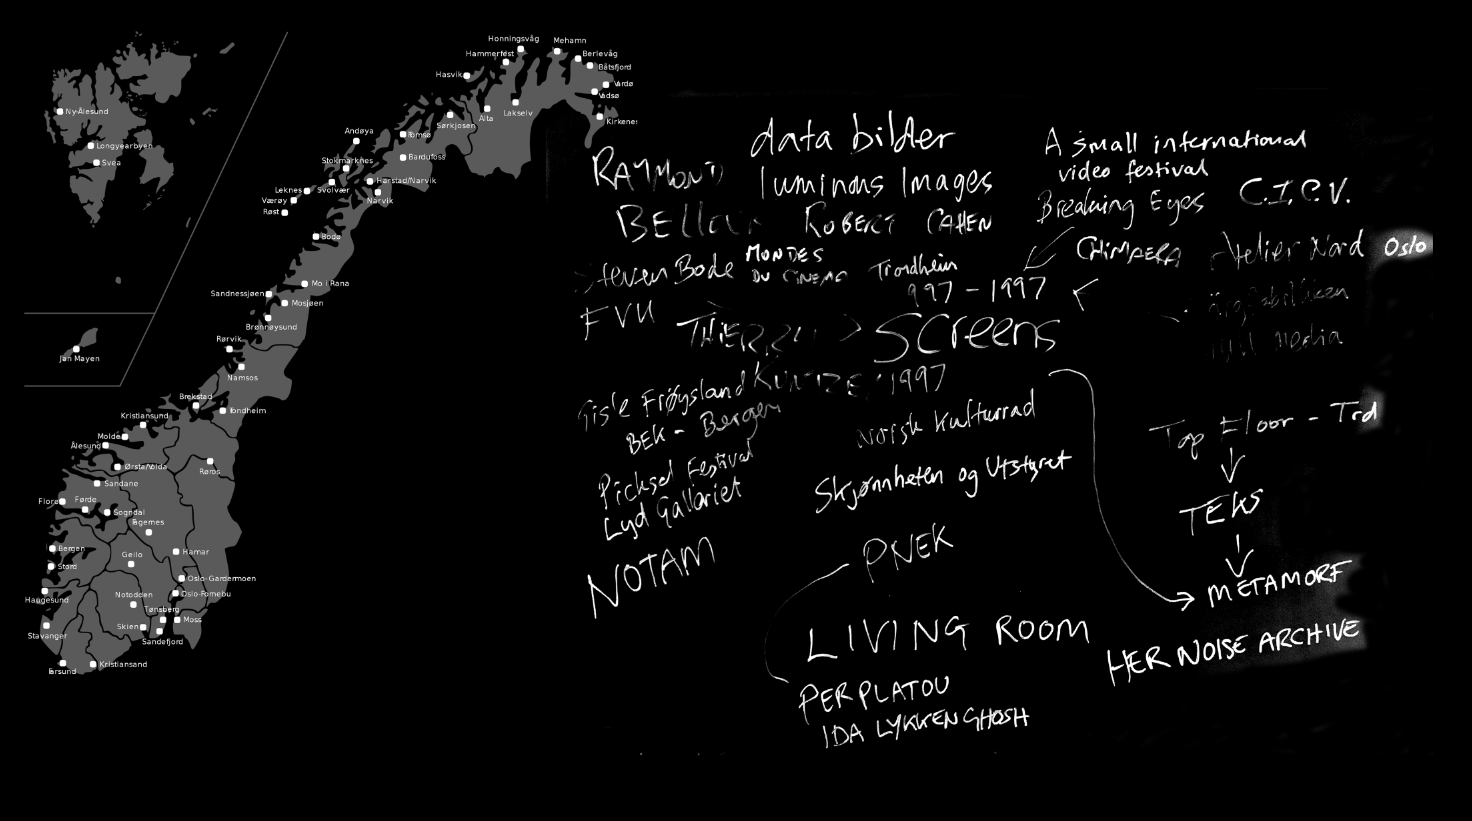 Honningsvåg
Mehamn
Hammerfest
Berlevåg
Båtsfjord
Hasvik
Vardø
Vadsø
Alta
Lakselv
Kirkenes
Sørkjosen
Andøya
Tromsø
Bardufoss
Stokmarknes
Harstad/Narvik
Svolvær
Leknes
Narvik
Værøy
Røst
Bodø
Mo i Rana
Sandnessjøen
Mosjøen
Brønnøysund
Rørvik
Namsos
Ny-Ålesund
Longyearbyen
Svea
Jan Mayen
Brekstad
Trondheim
Kristiansund
Molde
Ålesund
Ørsta/Volda
Røros
Sandane
Florø
Førde
Sogndal
Fagernes
Bergen
Geilo
Hamar
Stord
Oslo-Gardermoen
Haugesund
Notodden
Oslo-Fornebu
Tønsberg
Skien
Moss
Stavanger
Sandefjord
Kristiansand
data bilder
RAYMOND
luminous Images
BELLOUR
ROBERT CAHEN
Steven Bode
MONDES
DU CINEMA
Trondheim
997 - 1997
FVU
THIERRY
Screens
KUNTZEL
1997
Frøysland
BEK - Bergen
Norsk Kulturrad
Picksel Festival
Lyd Galleriet
Skjønnheten og Utstyret
NOTAM
PNEK
LIVING ROOM
PER PLATOU
IDA LYKKEN GHOSH
A small international
video festival
Breaking Eyes
C.I.C.V.
CHIMAERA
Atelier Nord
Oslo
media
Top Floor - Trd
TEKS
METAMORF
HER NOISE ARCHIVE